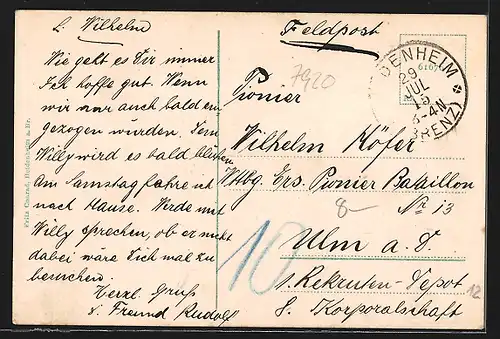 L. Wilhelm
Wie geht es Dir immer
Ich hoffe gut. Wenn
wir nur auch bald ein
gezogen würden. Dem
Willy wird es bald blühen
Am Samstag fahre ich
nach Hause. Werde mit
Willy sprechen, ob er nicht
dabei wäre Dich mal zu
besuchen.
Herzl. Gruß
d. Freund Rudolf
Feldpost
7920
6167
DENHEIM
29
JUL
15
3-4N
(BRENZ)
Pionier
Wilhelm Köfer
Wttbg Ers. Pionier Bataillon
8- Nr 13
10
Ulm a. D.
1. Rekruten-Depot
8. Korporalschaft
12
Heidenheim a. Br.